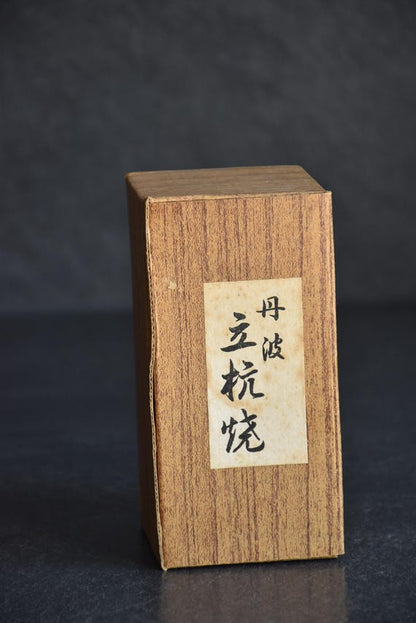 丹波
立杭焼